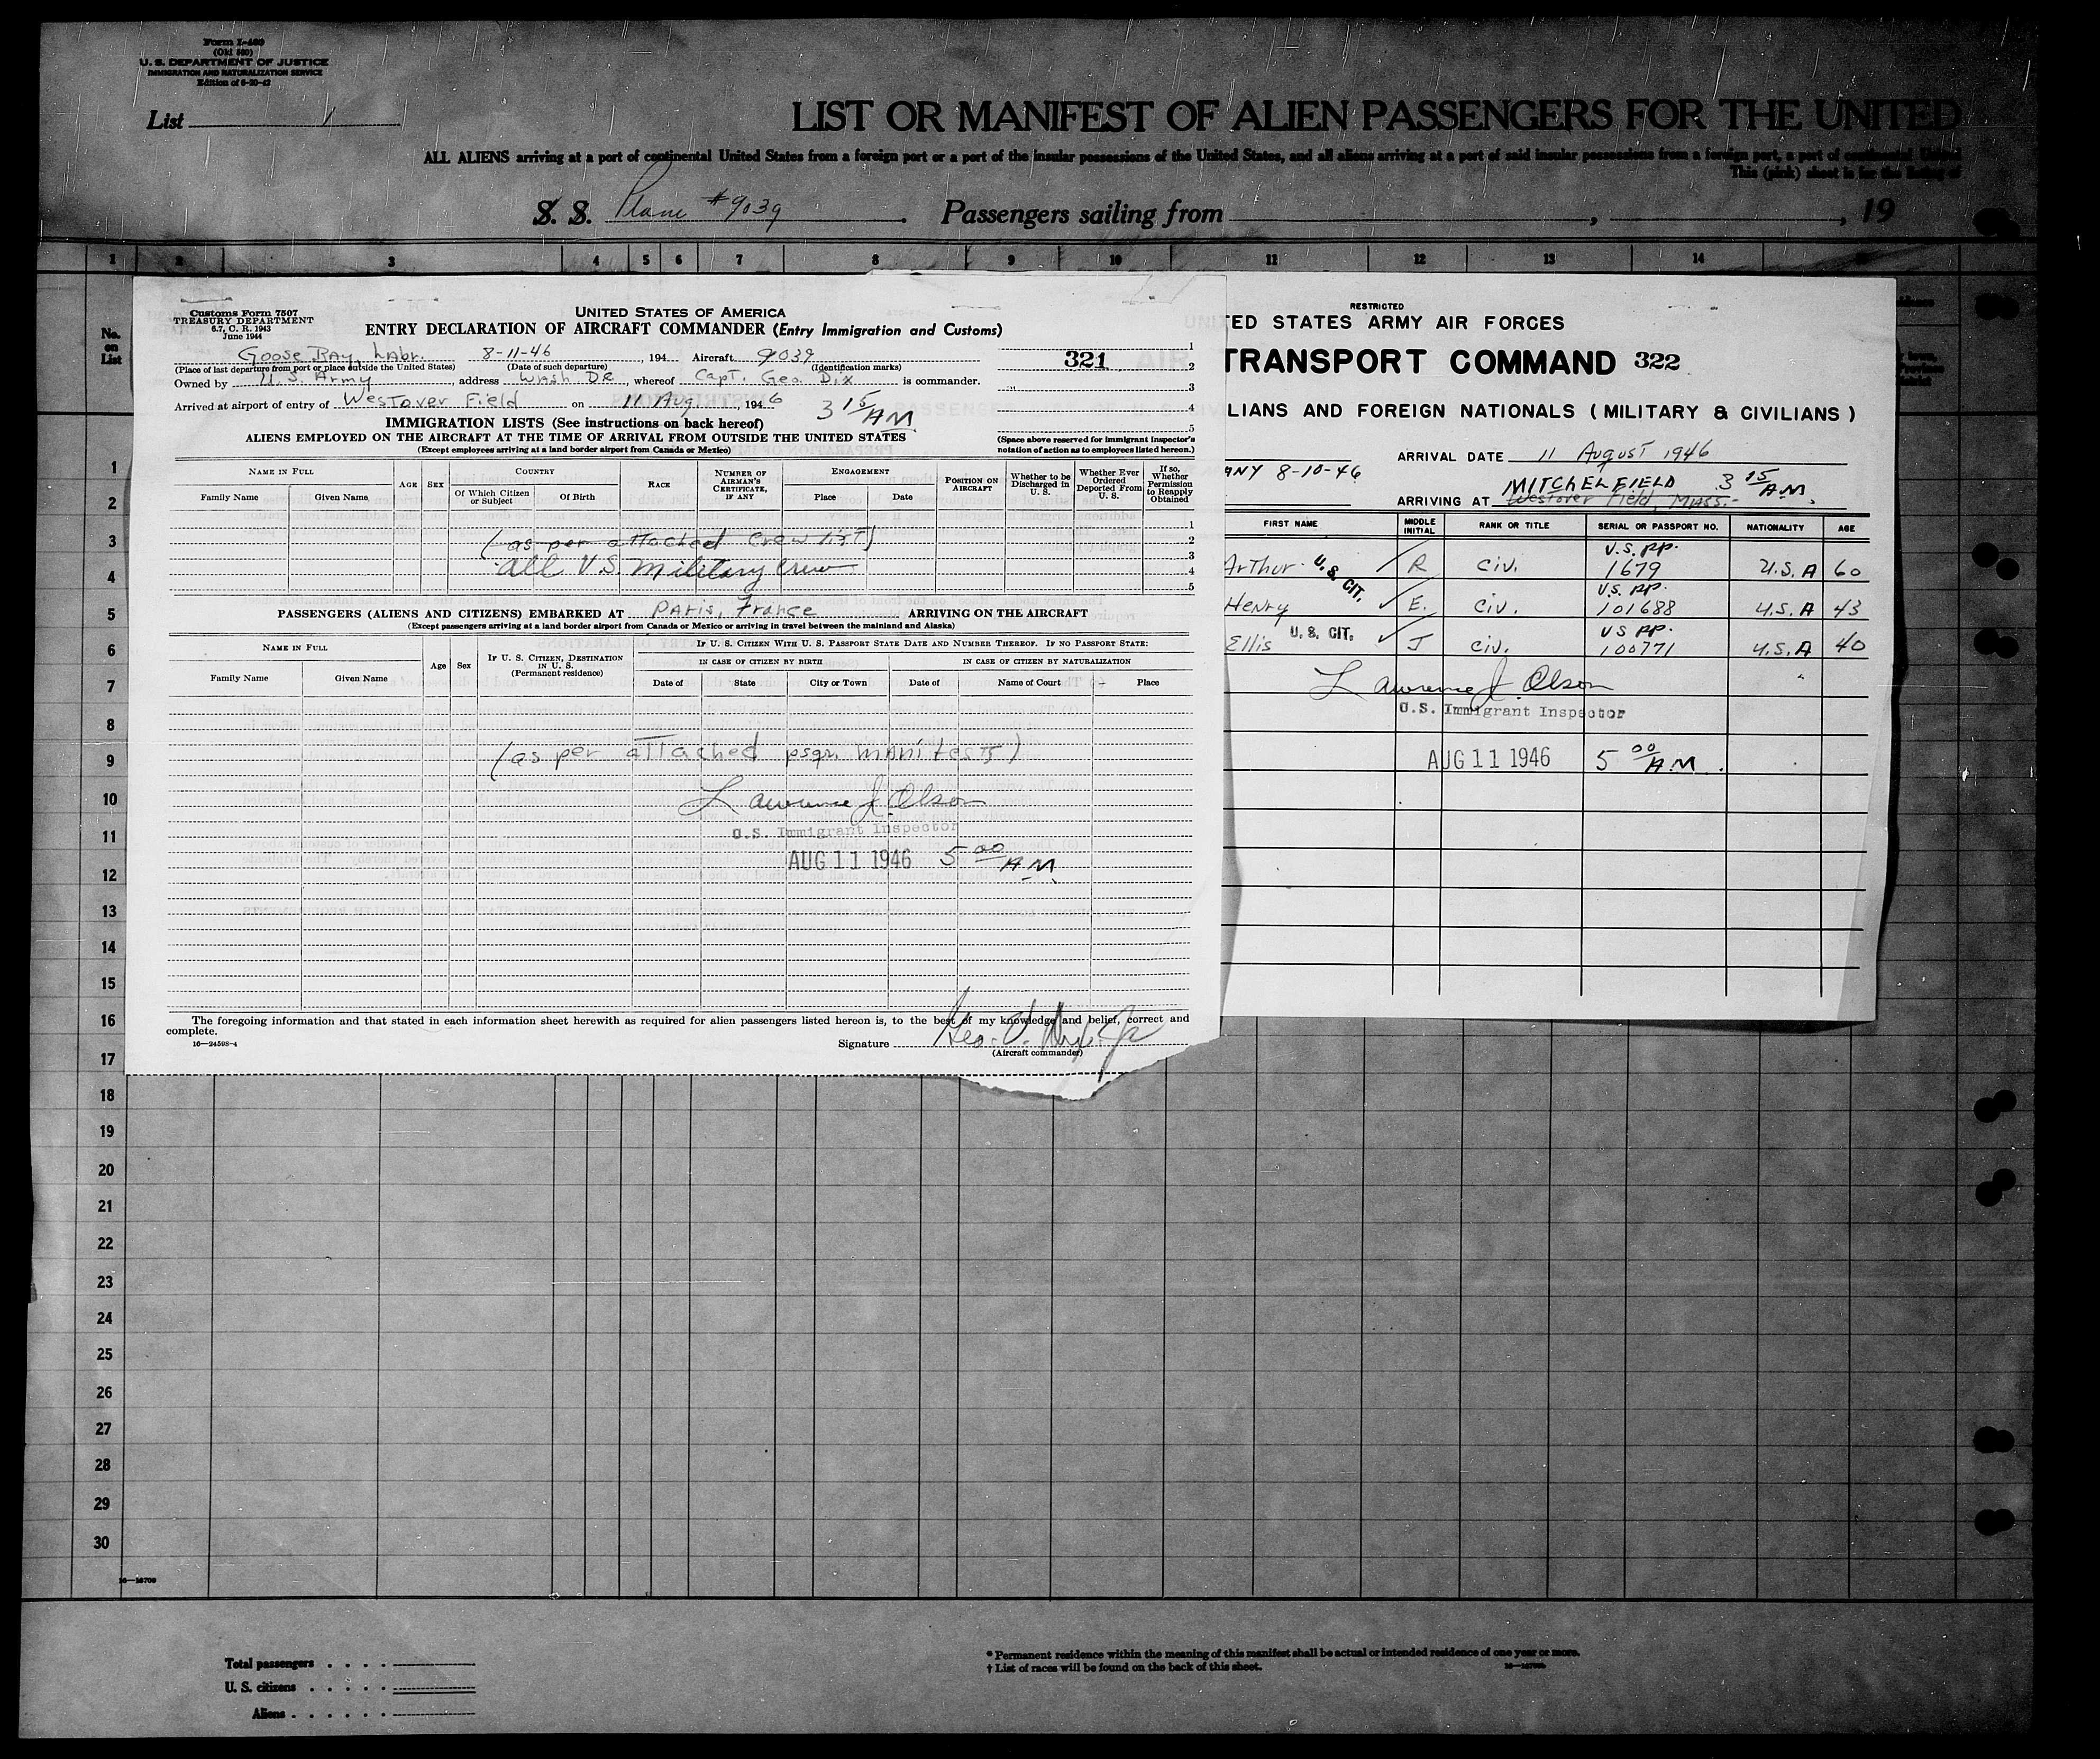 Form I-480
(Old 500)
U. S. DEPARTMENT OF JUSTICE
IMMIGRATION AND NATURALIZATION SERVICE
Edition of 6-20-42
List 1
LIST OR MANIFEST OF ALIEN PASSENGERS FOR THE UNITED
ALL ALIENS arriving at a port of continental United States from a foreign port or a port of the insular possessions of the United States, and all aliens arriving at a port of said insular possessions from a foreign port, a port of continental United
This (pink) sheet is for the listing of
S. S. Plane #9039. Passengers sailing from , , 19
1 2 3 4 5 6 7 8 9 10 11 12 13 14
No. on List
Customs Form 7507
TREASURY DEPARTMENT
6.7, C. R. 1943
June 1944
UNITED STATES OF AMERICA
ENTRY DECLARATION OF AIRCRAFT COMMANDER (Entry Immigration and Customs)
Goose Bay, Labr. 8-11-46, 194 Aircraft 9039
(Place of last departure from port or place outside the United States) (Date of such departure) (Identification marks)
Owned by U.S. Army, address Wash DC, whereof Capt. Geo. Dix is commander.
Arrived at airport of entry of Westover Field on 11 Aug., 1946 3 15 AM
321
1
2
3
4
5
(Space above reserved for immigrant inspector's notation of action as to employees listed hereon.)
IMMIGRATION LISTS (See instructions on back hereof)
ALIENS EMPLOYED ON THE AIRCRAFT AT THE TIME OF ARRIVAL FROM OUTSIDE THE UNITED STATES
(Except employees arriving at a land border airport from Canada or Mexico)
NAME IN FULL AGE SEX COUNTRY RACE NUMBER OF AIRMAN'S CERTIFICATE, IF ANY ENGAGEMENT POSITION ON AIRCRAFT Whether to be Discharged in U. S. Whether Ever Ordered Deported From U. S. If so, Whether Permission to Reapply Obtained
Family Name Given Name Of Which Citizen or Subject Of Birth Place Date
1
2
3
4
5
(as per attached crew list)
all U.S. Military Crew
PASSENGERS (ALIENS AND CITIZENS) EMBARKED AT Paris, France ARRIVING ON THE AIRCRAFT
(Except passengers arriving at a land border airport from Canada or Mexico or arriving in travel between the mainland and Alaska)
NAME IN FULL Age Sex IF U. S. CITIZEN, DESTINATION IN U. S. (Permanent residence) IF U. S. CITIZEN WITH U. S. PASSPORT STATE DATE AND NUMBER THEREOF. IF NO PASSPORT STATE:
IN CASE OF CITIZEN BY BIRTH IN CASE OF CITIZEN BY NATURALIZATION
Family Name Given Name Date of State City or Town Date of Name of Court Place
(as per attached psgr. manifests)
Lawrence J. Olson
U.S. Immigrant Inspector
AUG 11 1946 5 00 AM
The foregoing information and that stated in each information sheet herewith as required for alien passengers listed hereon is, to the best of my knowledge and belief, correct and
complete.
16—24598-4
Signature
(Aircraft commander)
RESTRICTED
TED STATES ARMY AIR FORCES
TRANSPORT COMMAND 322
LIANS AND FOREIGN NATIONALS ( MILITARY & CIVILIANS )
ARRIVAL DATE 11 August 1946
ANY 8-10-46
MITCHEL FIELD 3 15 AM
ARRIVING AT Westover Field, Mass.
FIRST NAME MIDDLE INITIAL RANK OR TITLE SERIAL OR PASSPORT NO. NATIONALITY AGE
Arthur U.S. CIT. R civ. U.S. PP. 1679 U.S.A 60
Henry E. civ. U.S. PP. 101688 U.S.A 43
Ellis U.S. CIT. J civ. US PP. 100771 U.S.A 40
Lawrence J. Olson
U.S. Immigrant Inspector
AUG 11 1946 5 00 AM.
1
2
3
4
5
6
7
8
9
10
11
12
13
14
15
16
17
18
19
20
21
22
23
24
25
26
27
28
29
30
16—16709
Total passengers . . . .
U. S. citizens . . . . .
Aliens . . . . . .
* Permanent residence within the meaning of this manifest shall be actual or intended residence of one year or more.
† List of races will be found on the back of this sheet.